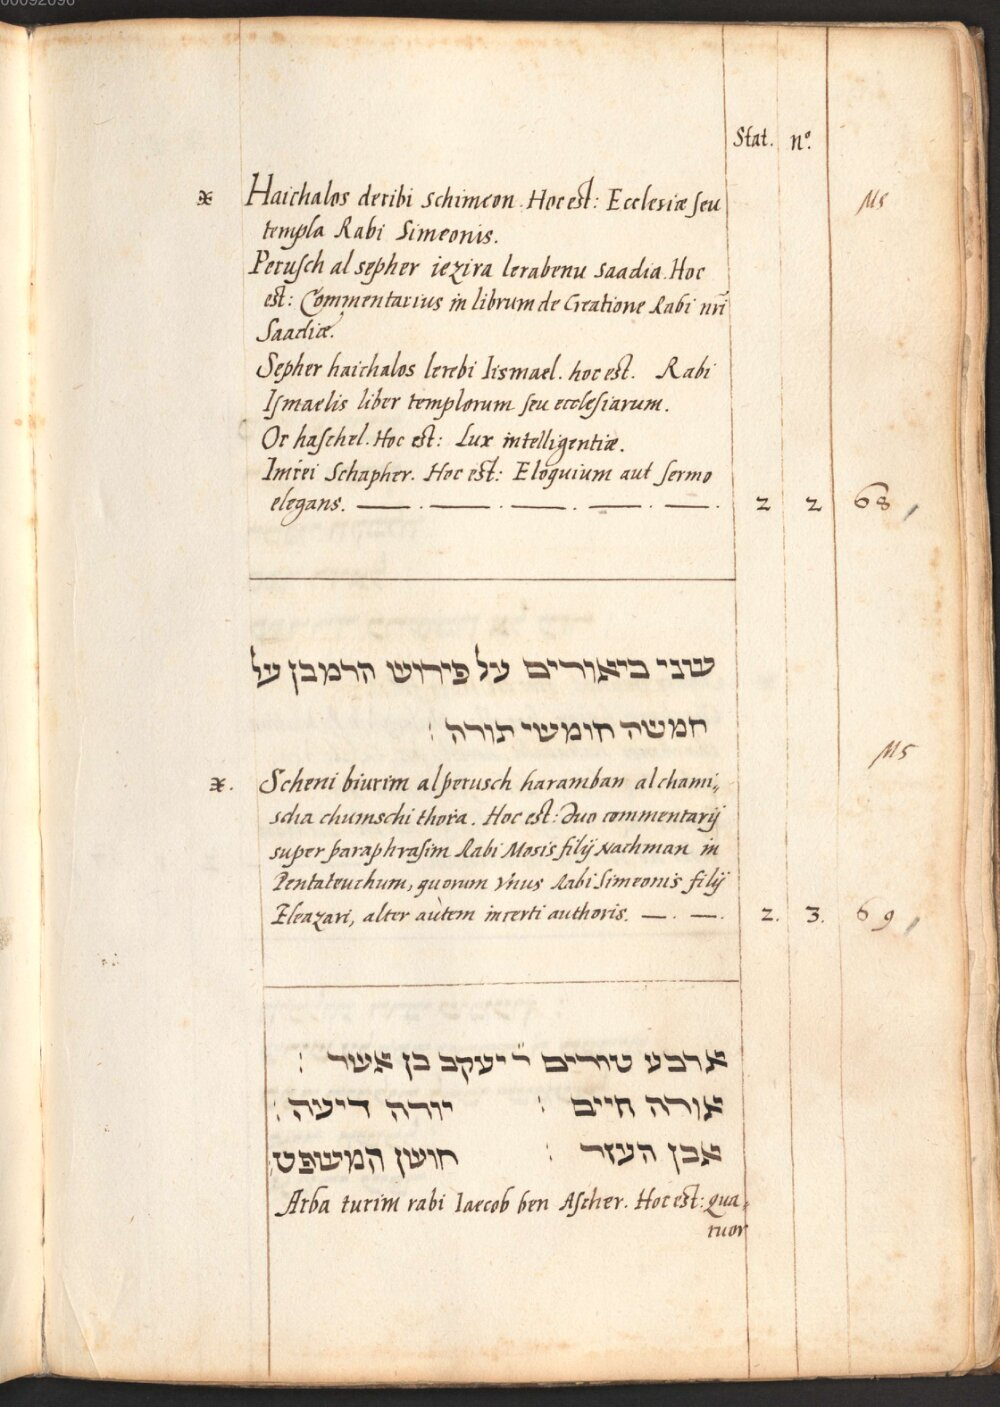 00092096
Stat. nº.
Haichalos deribi schimeon. Hoc est: Ecclesiæ seu MS
templa Rabi Simeonis.
Perusch al sepher iezira lerabenu saadia. Hoc
est: Commentarius in librum de Creatione Rabi nr̄i
Saadiæ.
Sepher haichalos lerebi Iismael. hoc est. Rabi
Ismaelis liber templorum seu ecclesiarum.
Or haschel. Hoc est: Lux intelligentiæ.
Imrei Schapher. Hoc est: Eloquium aut sermo
elegans. — . — . — . — . — . 2 2 68
שני ביאורים על פירוש הרמבן על
חמשה חומשי תורה :
MS
Scheni biurim al perusch haramban al chami„
scha chumschi thora. Hoc est: Duo commentarij
super paraphrasim Rabi Mosis filij Nachman in
Pentateuchum, quorum vnus Rabi Simeonis filij
Eleazari, alter autem incerti authoris. — . — . 2. 3. 69
ארבע טורים ר יעקב בן אשר :
אורה חיים : יורה דיעה :
אבן העזר : חושן המשפט:
Arba turim rabi Iaecob ben Ascher. Hoc est: qua„
tuor